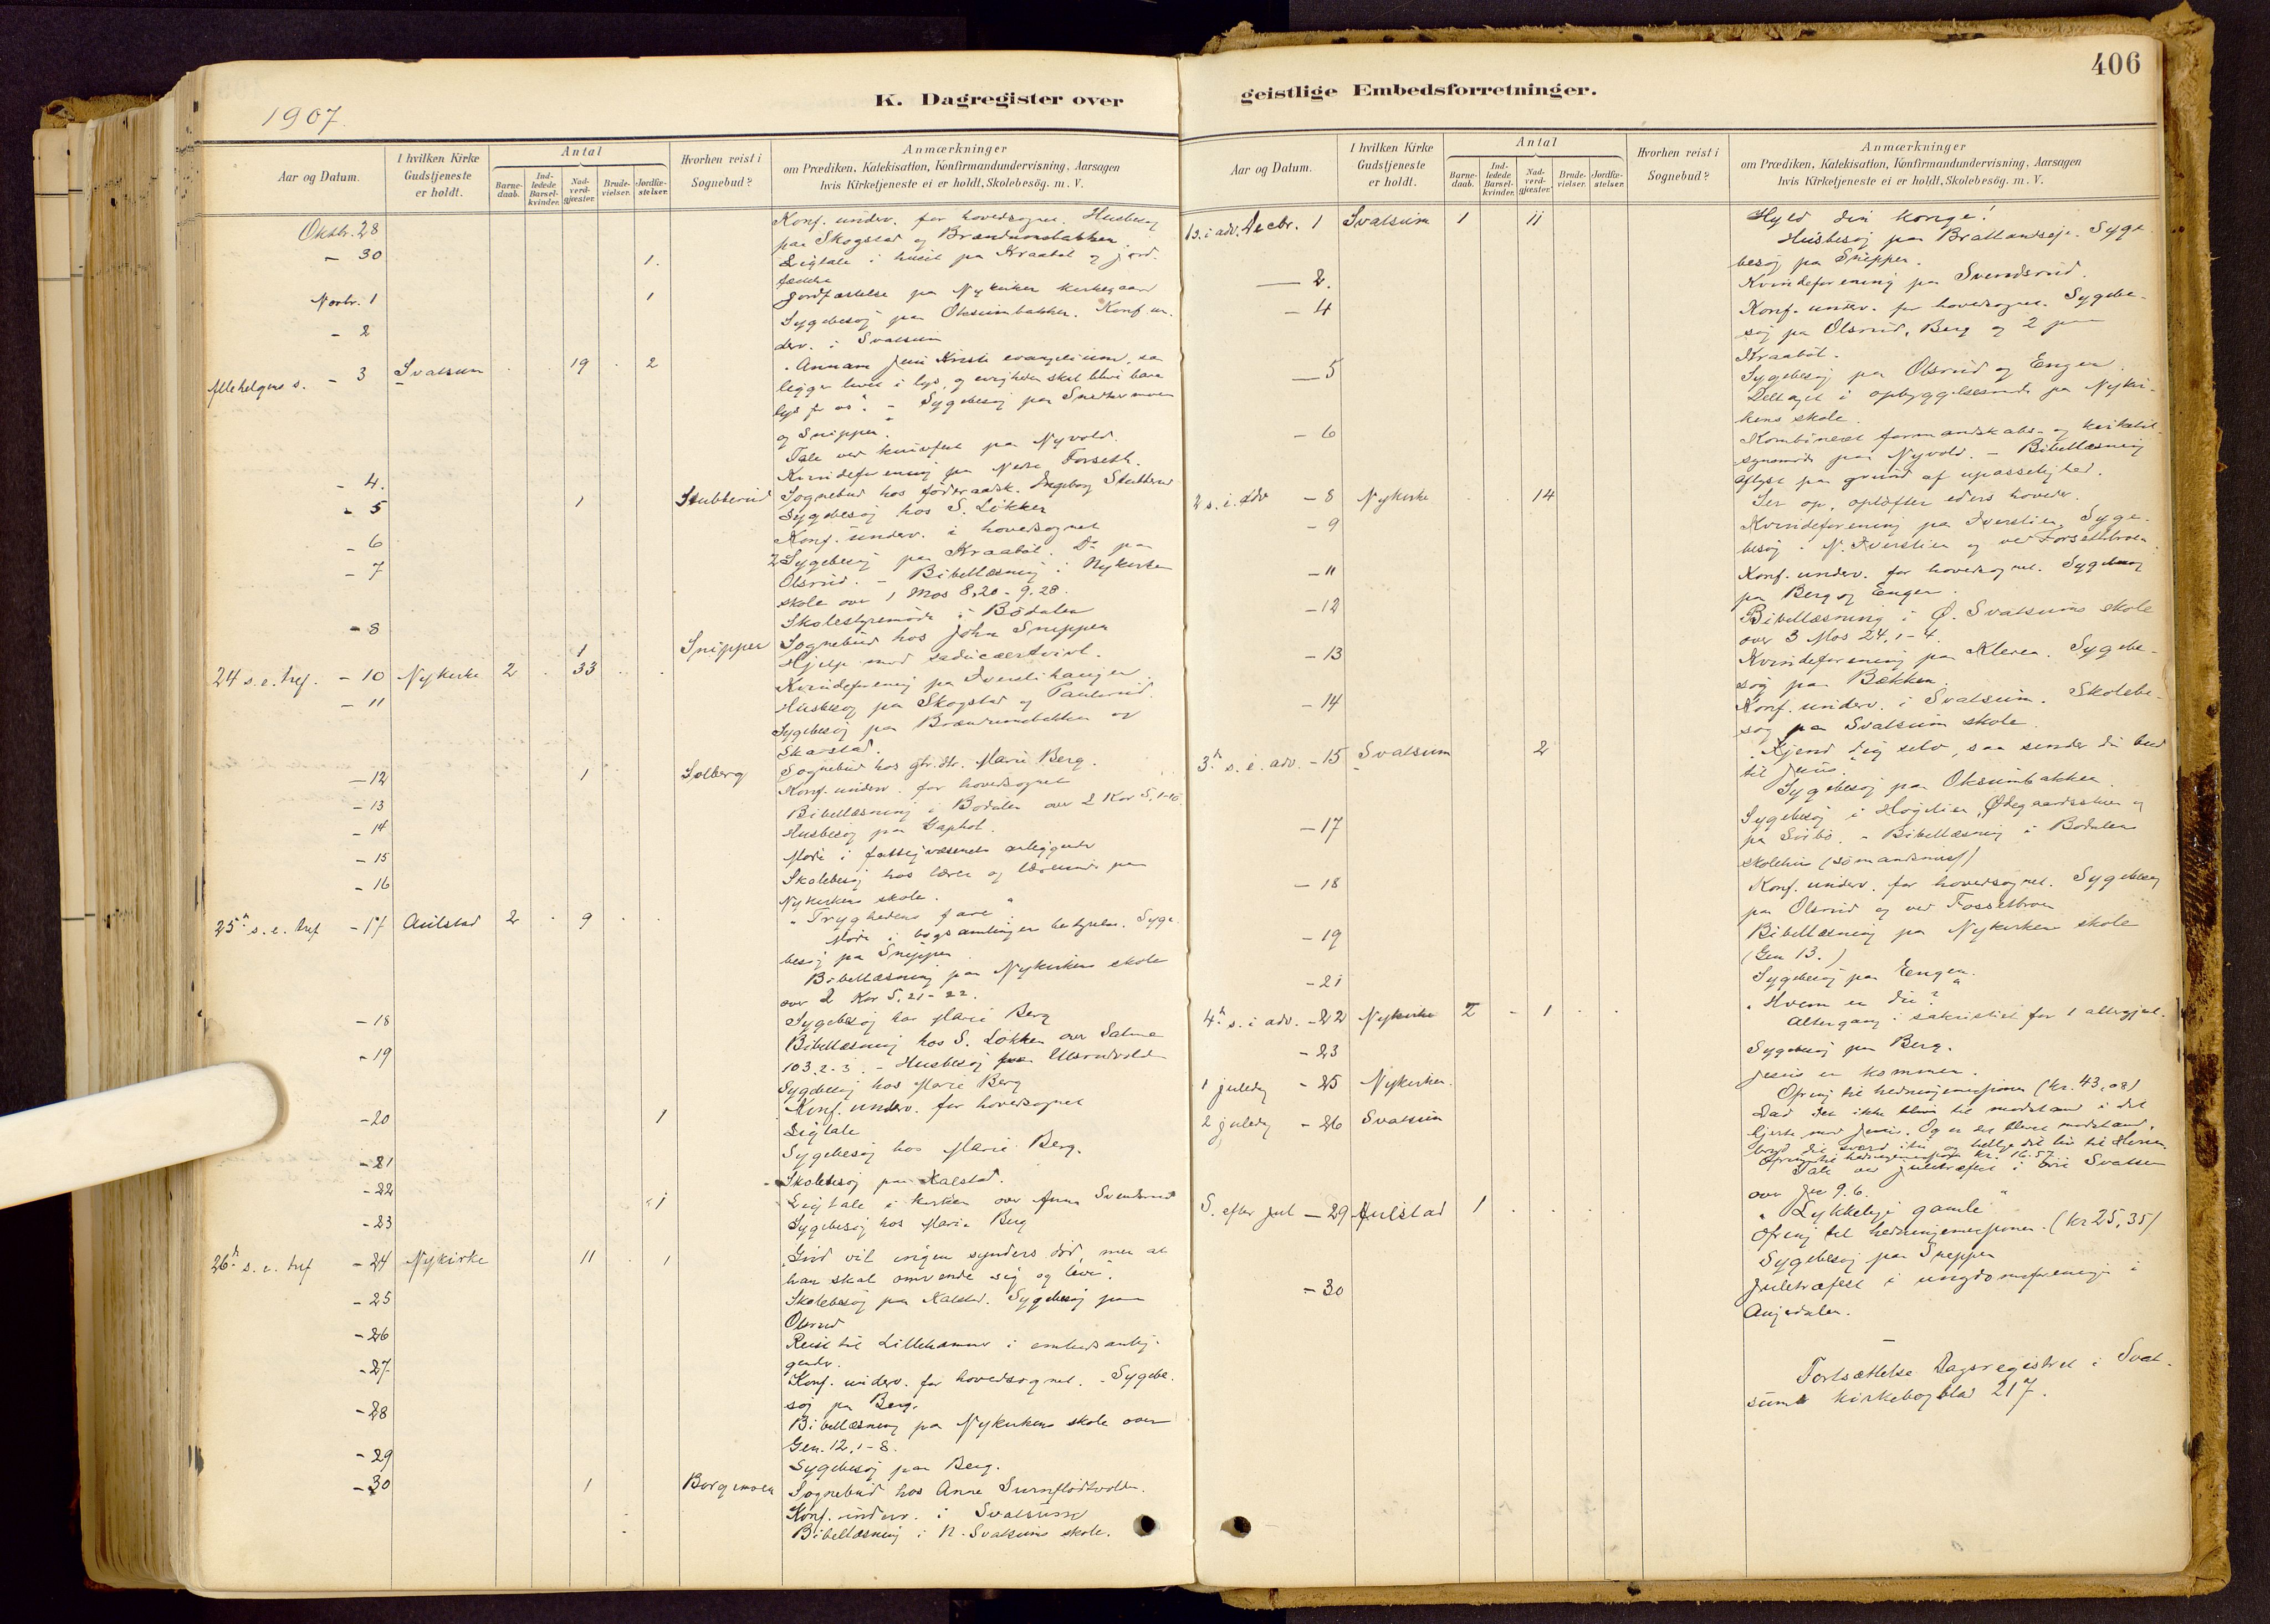 1907.
K. Dagregister over
Aar og Datum.
I hvilken Kirke Gudstjeneste er holdt.
Antal
Barne-daab.
Ind-ledede Barsel-kvinder.
Nad-verd-gjæster.
Brude-vielser.
Jordfæ-stelser.
Hvorhen reist i Sognebud?
Anmærkninger
om Prædiken, Katekisation, Konfirmandundervisning, Aarsagen
hvis Kirketjeneste ei er holdt, Skolebesög. m. V.
Oktbr. 28 Konf. underv. for hovedsognet. Husbesøg
paa Skogstad og Brændumsbakken.
- 30 1. Ligtale i huset paa Kraabøl og jord-
fæstelse
Novbr. 1 1 Jordfæstelse paa Nykirken kirkegaard
- 2 Sygebesøj paa Oksumbakken. Konf. un-
derv. i Svatsum
Allehelgens s. - 3 Svatsum 19 2 Annam Jesu Kristi evangelium, saa
ligger livet i lys, og evigheden skal blive bare
lys for os". - Sygebesøj paa
og Snippen.
Tale ved paa Nyvold.
- 4. Kvindeforening paa Nedre Forseth.
- 5 1 Stubberud Sognebud hos føderaadsk. Ingeborg Stubberud
Sygebesøj hos S. Løkken
- 6 Konf. underv. i hovedsognet
- 7 2 Sygebesøj paa Kraabøl. Do paa
Olsrud. - Bibellæsning i Nykirken
skole over 1 Mos 8,20 - 9.28.
- 8 Skolestyremøde i Bødalen
1 Snippen Sognebud hos John Snippen
24 s. e. tref. - 10 Nykirke 2 33 Hjælp mod
Kvindeforening paa Iverslihaugen
- 11 Husbesøg paa Skogstad og Paulsrud.
Sygebesøj paa Brændumsbakken og
Skarstad.
- 12 1 Solberg Sognebud hos Marie Berg.
- 13 Konf. underv. for hovedsognet
- 14 Bibellæsning i Bødalen over 2 Kor 5,1-10
Husbesøj paa
- 15 Møde i fattigvæsenets anliggender
- 16 Skolebesøj hos lærer og paa
Nykirkens skole.
25de s. e. tref - 17 Aulstad 2 9 "Tryghedens fare"
Møde i bogsamlingens bestyrelse. Syge-
besøj paa Snippen
Bibellæsning paa Nykirkens skole
over 2 Kor 5, 21-22.
- 18 Sygebesøj hos Marie Berg
- 19 Bibellæsning hos S. Løkken over Salme
103.2-3. - Husbesøj paa
Sygebesøj hos Marie Berg
- 20 Konf. underv. for hovedsognet
1 Ligtale
- 21 Sygebesøj hos Marie Berg.
- 22 Skolebesøj paa Kalstad.
- 23 1 Ligtale i kirken over Anna Svendsrud
Sygebesøj hos Marie Berg
26de s. e. tref - 24 Nykirke 11 1 Gud vil ingen synders død, men at
han skal omvende sig og leve".
- 25 Skolebesøj paa Kalstad. Sygebesøj paa
Olsrud
- 26 Reist til Lillehammer i embedsanlig-
gender.
- 27 Konf. underv. for hovedsognet. - Sygebe-
søj paa Berg.
- 28 Bibellæsning paa Nykirkens skole over
Gen. 12, 1-8.
- 29 Sygebesøj paa Berg.
- 30 1 Borgemoen Sognebud hos Anne
Konf. underv. i Svatsum
Bibellæsning i N. Svatsums skole.
406
geistlige Embedsforretninger.
Aar og Datum.
I hvilken Kirke Gudstjeneste er holdt.
Antal
Barne-daab.
Ind-ledede Barsel-kvinder.
Nad-verd-gjæster.
Brude-vielser.
Jordfæ-stelser.
Hvorhen reist i Sognebud?
Anmærkninger
om Prædiken, Katekisation, Konfirmandundervisning, Aarsagen
hvis Kirketjeneste ei er holdt, Skolebesög. m. V.
1 s. i adv. Decbr. 1 Svatsum 1 11 Hyld din konge!
Husbesøj paa Brattandseje. Syge-
besøj paa Snippen.
- 2. Kvindeforening paa Svendsrud.
- 4 Konf. underv. for hovedsognet. Sygebe-
søj paa Olsrud, Berg og 2 paa
Kraabøl.
- 5 Sygebesøj paa Olsrud og Engen.
Deltaget i opbyggelsesmøde paa Nykir-
kens skole.
- 6 Kombineret formandskabs- og kirketil-
synsmøde paa Nyvold. - Bibellæsning
aflyst paa grund af upasselighed.
2 s. i. adv - 8 Nykirke 14 Ser op, opløfter eders hoveder.
- 9 Kvindeforening paa Iverslien. Syge-
besøj i N. Iverslien og ved Forsethbroen.
- 11 Konf. underv. for hovedsognet. Sygebesøj
paa Berg og Engen.
- 12 Bibellæsning i Ø. Svatsums skole
over 3 Mos 24, 1-4.
- 13 Kvindeforening paa Kleven. Sygebe-
søj paa Bækken.
- 14 Konf. underv. i Svatsum. Skolebe-
søj paa Svatsum skole.
3de s. i. adv. - 15 Svatsum 2 "Kjend dig selv, saa sender du bud
til Jesus."
Sygebesøj paa Oksumbakken
- 17 Sygebesøj i Høgelien, Ødegaardsstuen og
paa - Bibellæsning i Bødalen
skolehus (sømandsmis.)
- 18 Konf. underv. for hovedsognet. Sygebesøj
paa Olsrud og ved Fossetbroen
- 19 Bibellæsning paa Nykirkens skole
(Gen 13.)
- 21 Sygebesøj paa Engen.
4de s. i adv. - 22 Nykirke 2 - 1 "Hvem er du?"
Altergang i sakristiet for 1 altergjæst.
- 23 Sygebesøj paa Berg.
1 juledag - 25 Nykirken. Jesus er kommen.
Ofring til hedningemisjonen (kr. 43,08)
2 juledag - 26 Svatsum Lad det ikke blive til modstand i dit
hjerte mod Jesus. Og er der blevet modstand,
Ofring til hedningemisjonen kr. 16.57
Tale ved juletræfest i Svatsum
over Jes 9.6.
S. efter jul - 29 Aulstad 1 "Lykkelige gamle"
Ofring til hedningemisjonen. (kr 25,35)
Sygebesøj paa Snippen
- 30 Juletræfest i ungdomsforeningen i
Augedalen.
Fortsættelse Dagsregistret i Svat-
sums kirkebog blad 217.